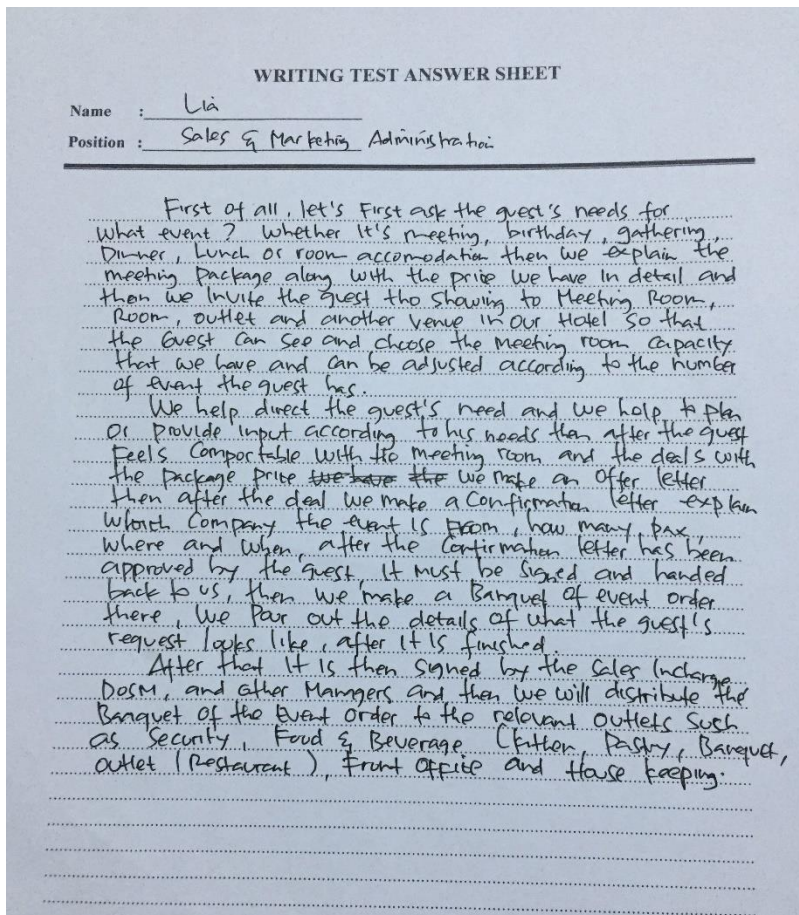 WRITING TEST ANSWER SHEET
Name : Lia
Position : Sales & Marketing Administration
First of all, let's First ask the guest's needs for
what event ? Whether It's meeting, birthday, gathering,
Dinner, Lunch or room accomodation then we explain the
meeting package along with the price we have In detail and
then we Invite the guest tho showing to Meeting Room,
Room, outlet and another venue in our Hotel so that
the Guest can see and choose the meeting room capacity
that we have and can be adjusted according to the number
of event the guest has.
We help direct the guest's need and we help to plan
or provide input according to his needs then after the guest
Feels Comportable with the meeting room and the deals with
the package price we have the we make an Offer letter
then after the deal we make a Confirmation letter explain
which Company the event Is From, how many pax,
where and when, after the Confirmation letter has been
approved by the guest, It must be signed and handed
back to us, then we make a Banquet of event order
there, we Pour out the details of what the guest's
request looks like, after It Is finished.
After that It is then signed by the Sales Incharge
DOSM, and other Managers and then we will distribute the
Banquet of the Event Order to the relevant outlets such
as Security, Food & Beverage (kitchen, Pastry, Banquet,
outlet (Restaurant), Front Office and House keeping.